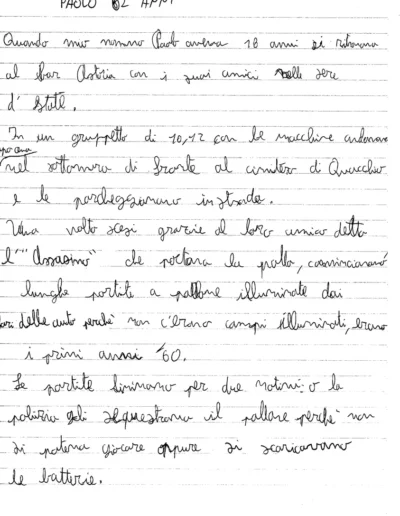 PAOLO 82 ANNI
Quando mio nonno Paolo aveva 18 anni si ritrovava
al bar Astria con i suoi amici nelle sere
d'Estate.
In un gruppetto di 10,12 con le macchine andavano
nel sottomura di fronte al cimitero di Quacchio
e le parcheggiavano in strada.
Una volta scesi grazie al loro amico detto
l'"Assasino" che portava la palla, cominciavano
lunghe partite a pallone illuminate dai
fari delle auto perchè non c'erano campi illuminati, erano
i primi anni '60.
Le partite finivano per due motivi: o la
polizia gli sequestrava il pallone perchè non
si poteva giocare oppure si scaricavano
le batterie.